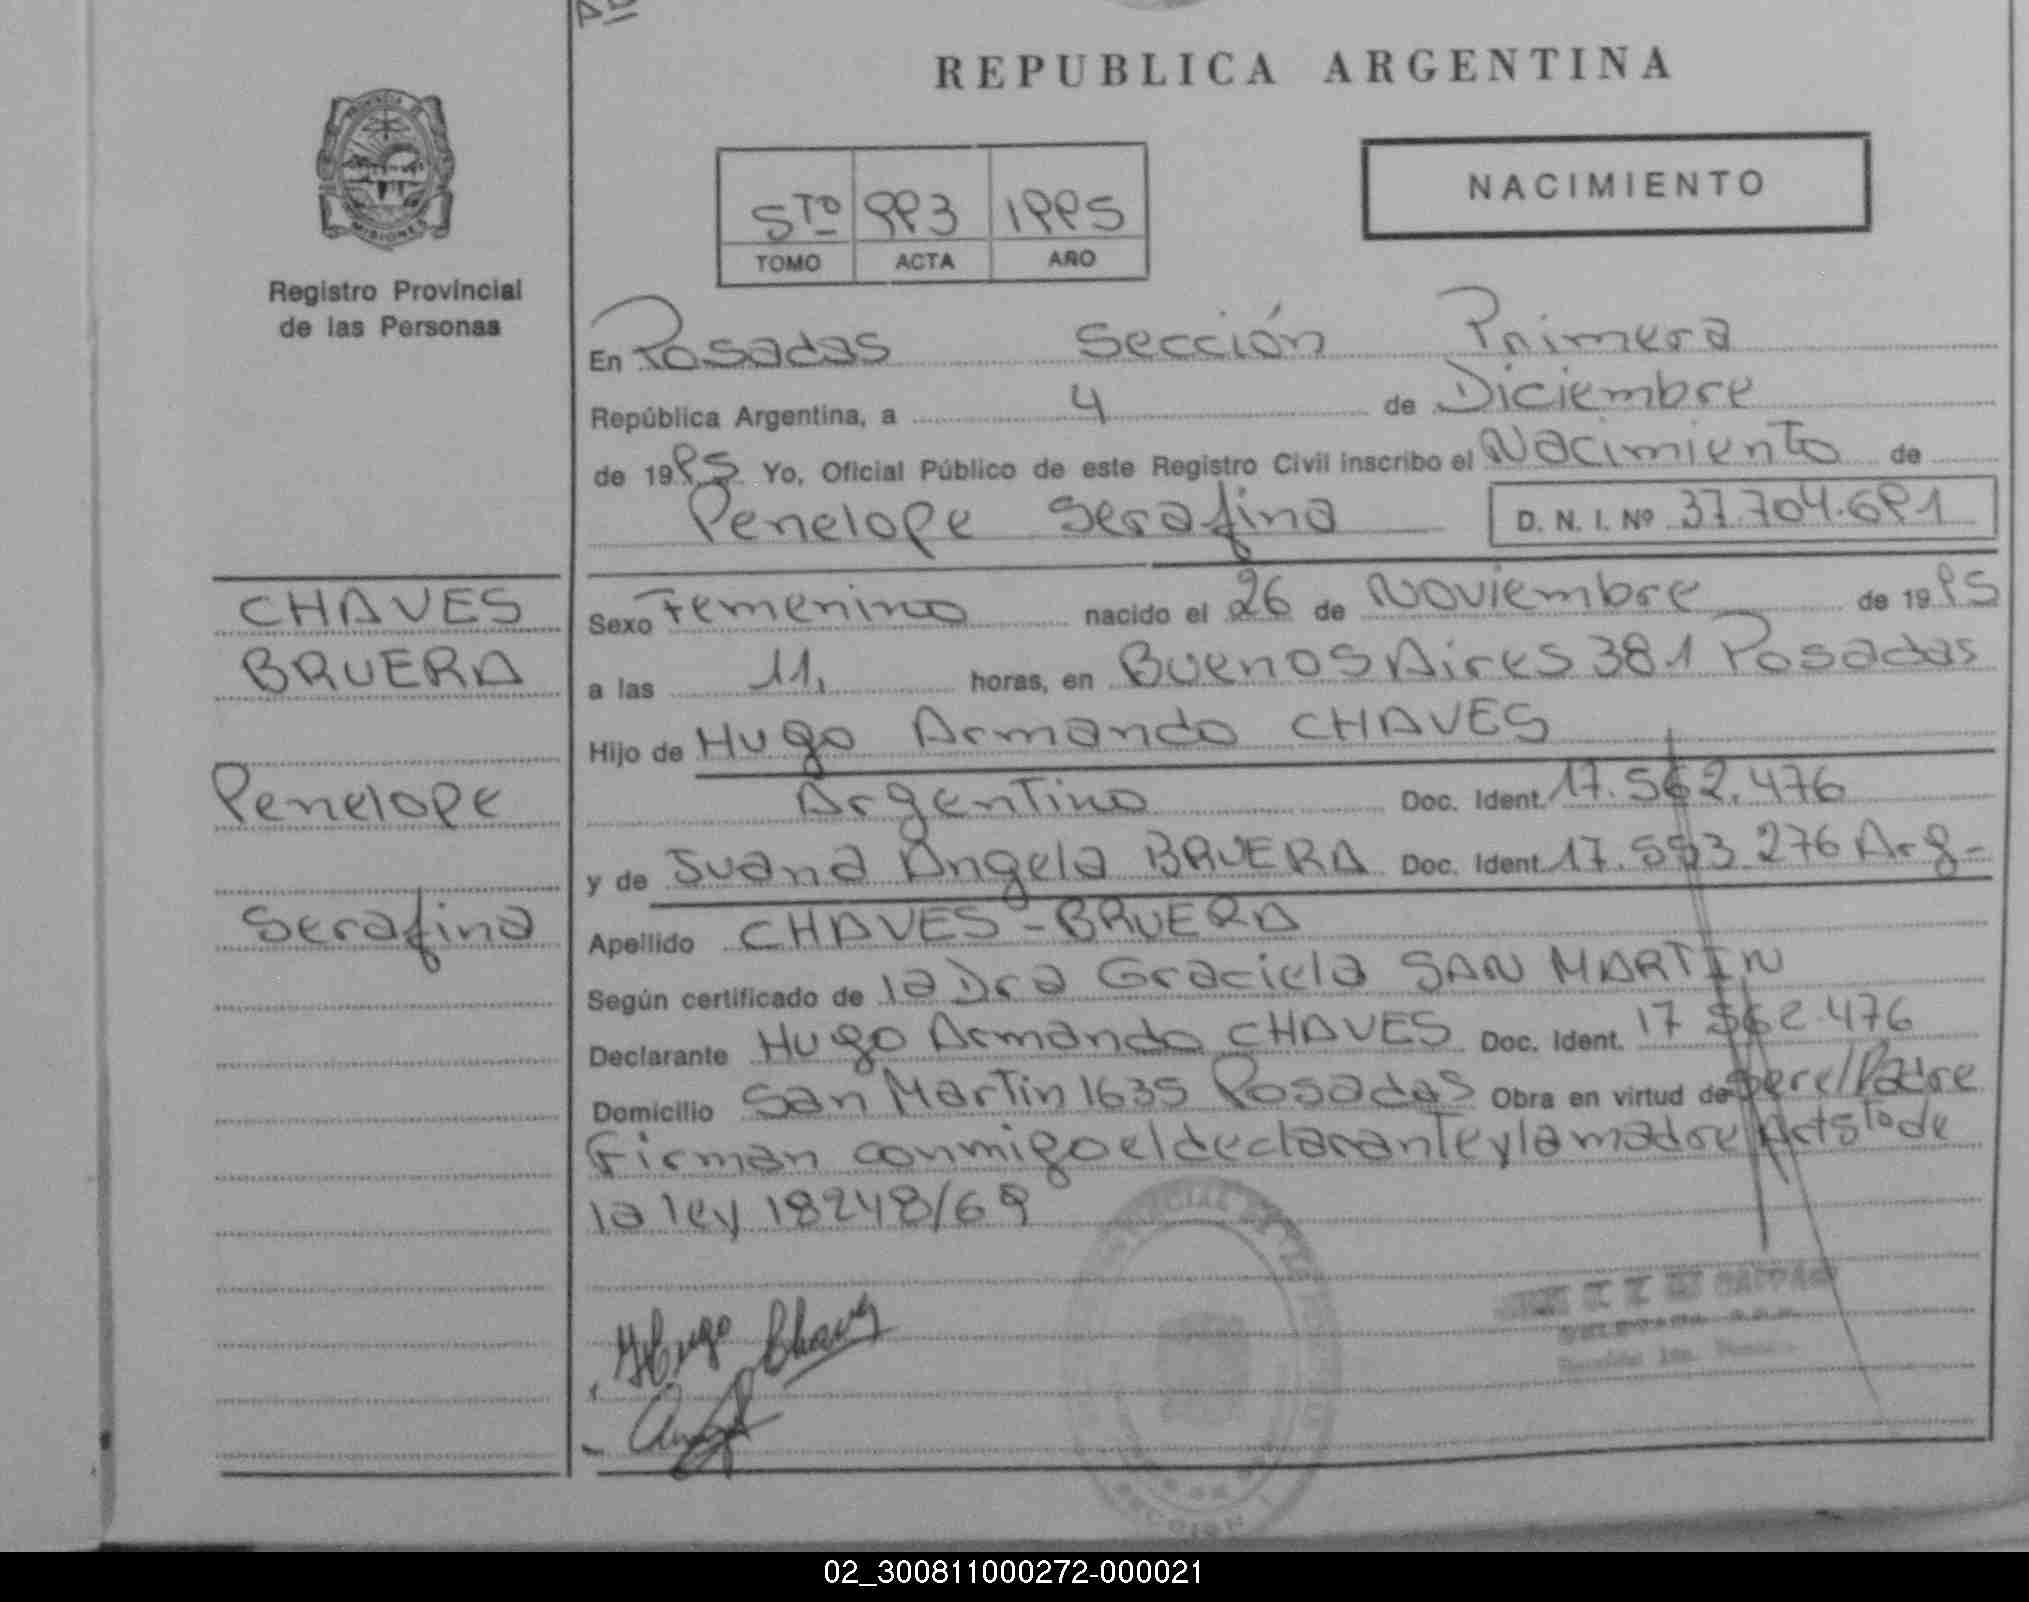 REPUBLICA ARGENTINA
PROVINCIA DE
MISIONES
Registro Provincial
de las Personas
5TO 993 1995
TOMO ACTA AÑO
NACIMIENTO
En Posadas Sección Primera
República Argentina, a 4 de Diciembre
de 1995 Yo, Oficial Público de este Registro Civil inscribo el Nacimiento de
Penelope Serafina D. N. I. Nº 37.704.691
CHAVES
BRUERA
Penelope
Serafina
Sexo Femenino nacido el 26 de Noviembre de 1995
a las 11, horas, en Buenos Aires 381 Posadas
Hijo de Hugo Armando CHAVES
Argentino Doc. Ident. 17.562.476
y de Juana Angela BRUERA Doc. Ident. 17.593 276 Arg-
Apellido CHAVES-BRUERA
Según certificado de la Dra Graciela SAN MARTIN
Declarante Hugo Armando CHAVES Doc. Ident. 17 562.476
Domicilio San Martin 1635 Posadas Obra en virtud de ser el Padre
Firman conmigo el declarante y la madre Art 5to de
la ley 18248/69
Hugo Chaves
SECCION
02_300811000272-000021